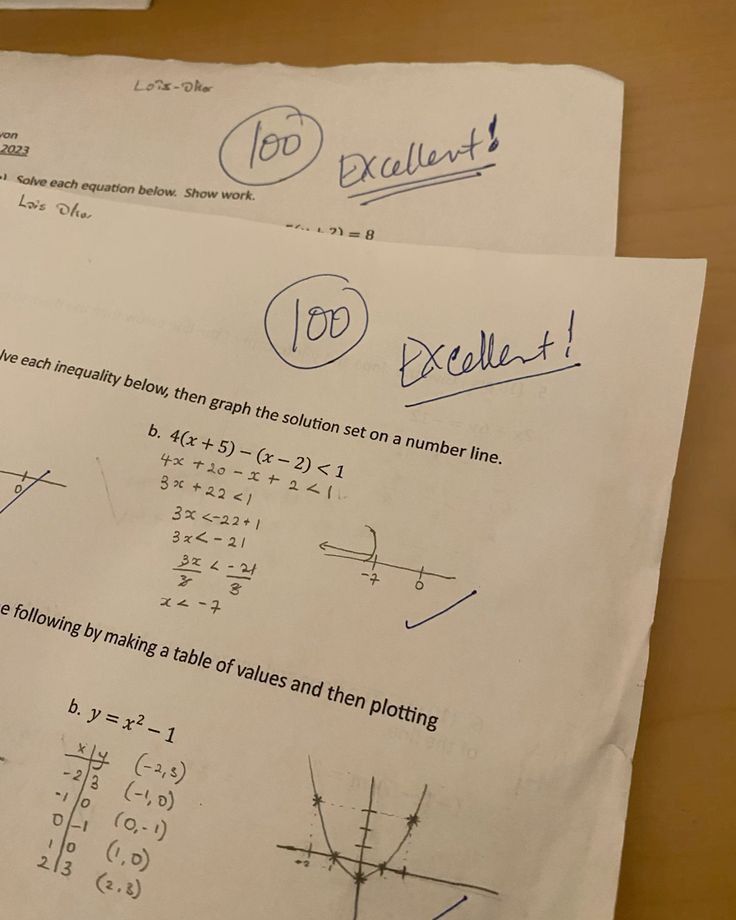 Loïs-Dhor
100 Excellent!
von
2023
Solve each equation below. Show work.
+ 2) = 8
Lois
100 Excellent!
lve each inequality below, then graph the solution set on a number line.
b. 4(x + 5) − (x − 2) < 1
4x + 20 - x + 2 < 1
3x + 22 < 1
3x < -22 + 1
3x < - 21
3x < - 21
3 3
x < - 7
0
-7 0
e following by making a table of values and then plotting
b. y = x² − 1
x | y
-2 | 3 (-2,3)
-1 | 0 (-1,0)
0 | -1 (0,-1)
1 | 0 (1,0)
2 | 3 (2,3)
-2 -1